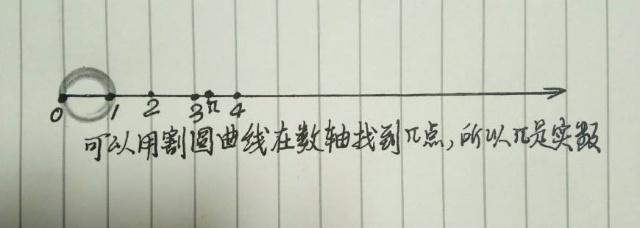 0 1 2 3 π 4
可以用割圆曲线在数轴找到π点,所以π是实数